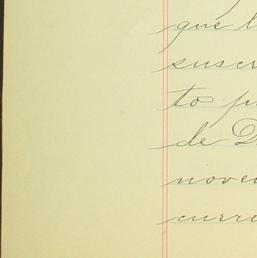 que l
suscr
to pr
de D
nove
curr